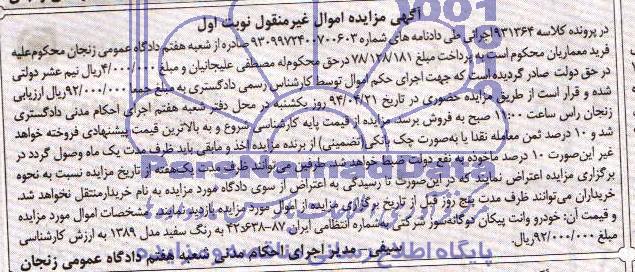 آگهی مزایده اموال غیرمنقول نوبت اول
در پرونده کلاسه ۹۳۱۳۶۴ اجرائی طی دادنامه های شماره ۹۳۰۹۹۷۲۴۰۰۷۰۰۶۰۳ صادره از شعبه هفتم دادگاه عمومی زنجان محکوم‌علیه
فرید معماریان محکوم است به پرداخت مبلغ ۷۸/۱۲۸/۱۸۱ درحق محکوم‌له مصطفی علیجانیان و مبلغ ۴/۰۰۰/۰۰۰ ریال نیم عشر دولتی
در حق دولت صادر گردیده است که جهت اجرای حکم اموال توسط کارشناس رسمی دادگستری به مبلغ جمعا ۹۲/۰۰۰/۰۰۰ ریال ارزیابی
شده و قرار است از طریق مزایده حضوری در تاریخ ۹۴/۰۴/۲۱ روز یکشنبه در محل دفتر شعبه هفتم اجرای احکام مدنی دادگستری
زنجان راس ساعت ۱۱:۰۰ صبح به فروش برسد. مزایده از قیمت پایه کارشناسی شروع و به بالاترین قیمت پیشنهادی فروخته خواهد
شد و ۱۰ درصد ثمن معامله نقدا یا به‌صورت چک بانکی (تضمینی) از برنده مزایده اخذ و مابقی باید ظرف مدت یک ماه وصول گردد در
غیر این‌صورت ۱۰ درصد ماخوذه به نفع دولت ضبط خواهد شد. طرفین می‌توانند ظرف مدت یک‌هفته از تاریخ مزایده نسبت به نحوه
برگزاری مزایده اعتراض نمایند که در این‌صورت تا رسیدگی به اعتراض از سوی دادگاه مورد مزایده به نام خریدار منتقل نخواهد شد.
خریداران می‌توانند ظرف مدت پنج روز قبل از تاریخ برگزاری مزایده از اموال مورد مزایده بازدید نمایند. مشخصات اموال مورد مزایده
و قیمت آن: خودرو وانت پیکان دوگانه‌سوز شرکتی به‌شماره انتظامی ایران ۸۷-۴۲۶۳۸ به رنگ سفید مدل ۱۳۸۹ به ارزش کارشناسی
مبلغ ۹۲/۰۰۰/۰۰۰ ریال.
سیفی - مدیر اجرای احکام مدنی شعبه هفتم دادگاه عمومی زنجان
ParsNamadData
پایگاه اطلاع رسانی